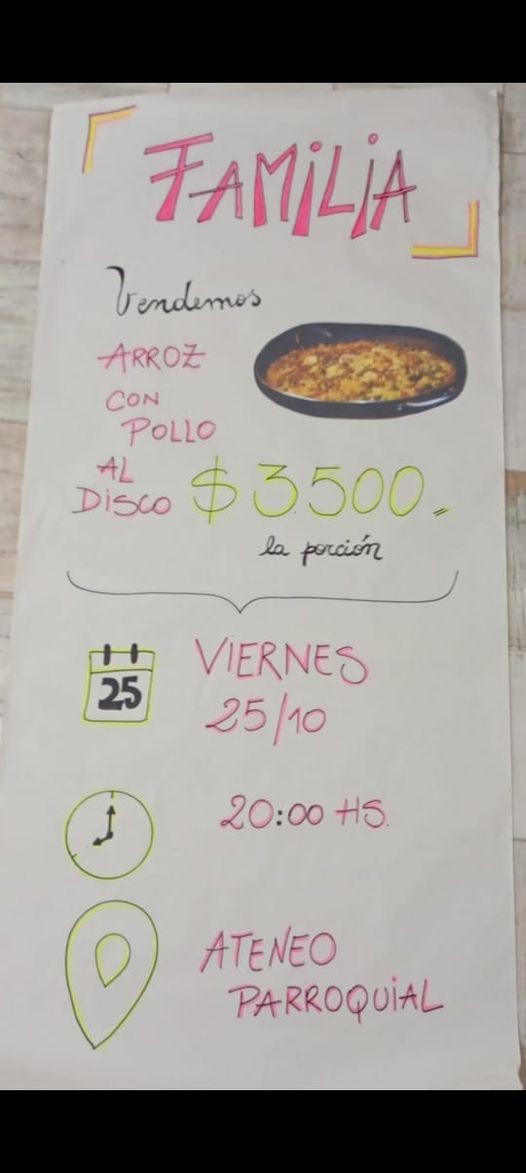 FAMILIA
Vendemos
ARROZ
CON
POLLO
AL
DISCO $3500.=
la porción
25
VIERNES
25/10
20:00 HS.
ATENEO
PARROQUIAL